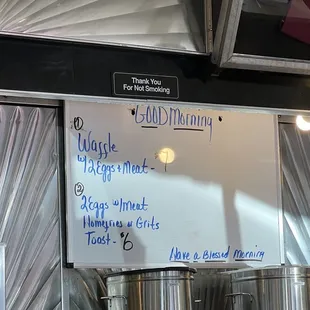 Thank You
For Not Smoking
GOOD MORNING
① Waffle
w/2Eggs + Meat-
② 2Eggs w/meat
Homefries or Grits
Toast - $6
Have a Blessed Morning